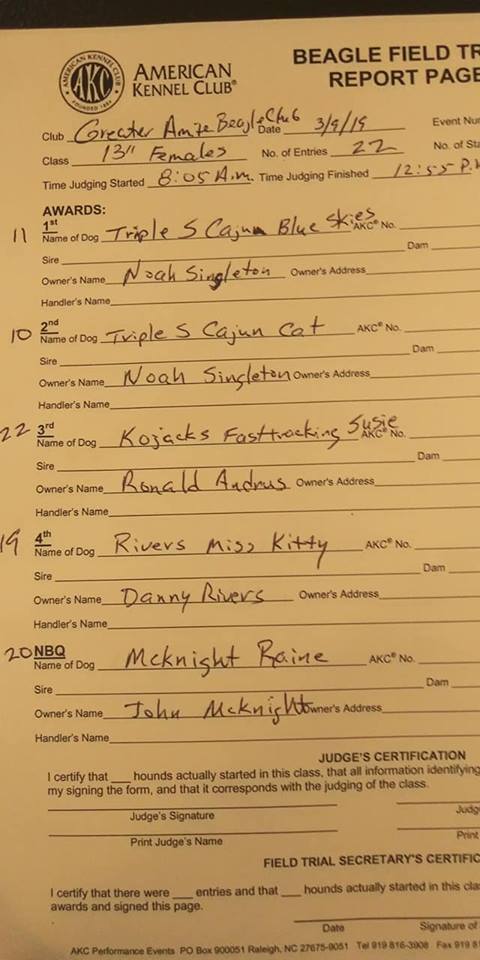 BEAGLE FIELD TR
REPORT PAGE
AMERICAN KENNEL CLUB
AKC
FOUNDED 1884
AMERICAN
KENNEL CLUB®
Club Greater Amite Beagle Club Date 3/9/19 Event Nu
Class 13" Females No. of Entries 22 No. of Sta
Time Judging Started 8:05 A.m. Time Judging Finished 12:55 P.
AWARDS:
11 1st
Name of Dog Triple S Cajun Blue Skies AKC® No.
Sire Dam
Owner's Name Noah Singleton Owner's Address
Handler's Name
10 2nd
Name of Dog Triple S Cajun Cat AKC® No.
Sire Dam
Owner's Name Noah Singleton Owner's Address
Handler's Name
22 3rd
Name of Dog Kojacks Fasttracking Susie AKC® No.
Sire Dam
Owner's Name Ronald Andrus Owner's Address
Handler's Name
19 4th
Name of Dog Rivers Miss Kitty AKC® No.
Sire Dam
Owner's Name Danny Rivers Owner's Address
Handler's Name
20 NBQ
Name of Dog Mcknight Raine AKC® No.
Sire Dam
Owner's Name John Mcknight Owner's Address
Handler's Name
JUDGE'S CERTIFICATION
I certify that ___ hounds actually started in this class, that all information identifying
my signing the form, and that it corresponds with the judging of the class.
Judge's Signature Judg
Print Judge's Name Print
FIELD TRIAL SECRETARY'S CERTIFIC
I certify that there were ___ entries and that ___ hounds actually started in this cla
awards and signed this page.
Date Signature of
AKC Performance Events PO Box 900051 Raleigh, NC 27675-9051 Tel 919 816-3908 Fax 919 8